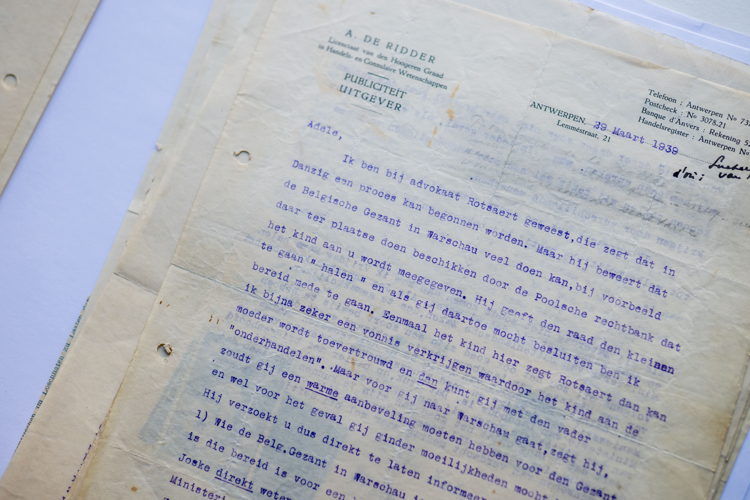 A. DE RIDDER
Licenciaat van den Hoogeren Graad
in Handels- en Consulaire Wetenschappen
PUBLICITEIT
UITGEVER
Telefoon : Antwerpen No 732
Postcheck : No 3078.21
Banque d'Anvers : Rekening 52
Handelsregister : Antwerpen No
ANTWERPEN, 29 Maart 1939
Lemméstraat, 21
Adele,
Ik ben bij advokaat Rotsaert geweest,die zegt dat in
Danzig een proces kan begonnen worden. Maar hij beweert dat
de Belgische Gezant in Warschau veel doen kan,bij voorbeeld
daar ter plaatse doen beschikken door de Poolsche rechtbank dat
het kind aan u wordt meegegeven. Hij geeft den raad den kleinen
te gaan " halen " en als gij daartoe mocht besluiten ben ik
bereid mede te gaan. Eenmaal het kind hier zegt Rotsaert dan kan
ik bijna zeker een vonnis verkrijgen waardoor het kind aan de
moeder wordt toevertrouwd en dan kunt gij met den vader
"onderhandelen". Maar voor gij naar Warschau gaat,zegt hij,
zoudt gij een warme aanbeveling moeten hebben voor den Gezant
en wel voor het geval gij ginder moeilijkheden mocht
Hij verzoekt u dus direkt te laten
1) Wie de Belg.Gezant in Warschau
is die bereid is voor een
Joske direkt